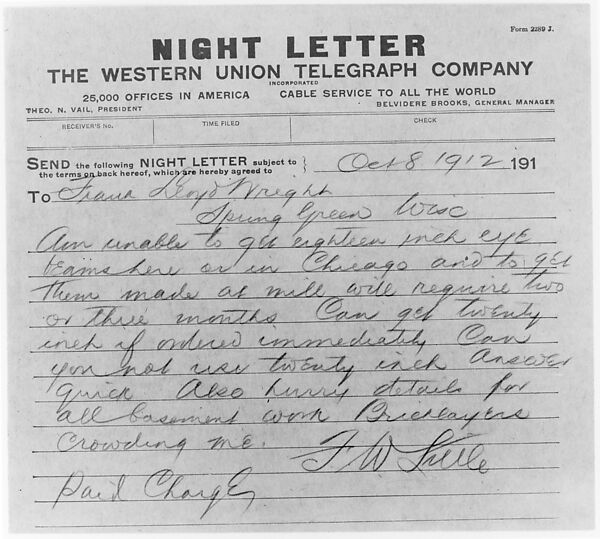 Form 2289 J.
NIGHT LETTER
THE WESTERN UNION TELEGRAPH COMPANY
INCORPORATED
25,000 OFFICES IN AMERICA CABLE SERVICE TO ALL THE WORLD
THEO. N. VAIL, PRESIDENT BELVIDERE BROOKS, GENERAL MANAGER
RECEIVER'S No. TIME FILED CHECK
SEND the following NIGHT LETTER subject to
the terms on back hereof, which are hereby agreed to
Oct 8 1912 191
To Frank Lloyd Wright
Spring Green Wisc
Am unable to get eighteen inch eye
beams here or in Chicago and to get
them made at mill will require two
or three months Can get twenty
inch if ordered immediately Can
you not use twenty inch Answer
quick Also hurry details for
all basement work Bricklayers
Crowding me.
F W Little
Paid Charge